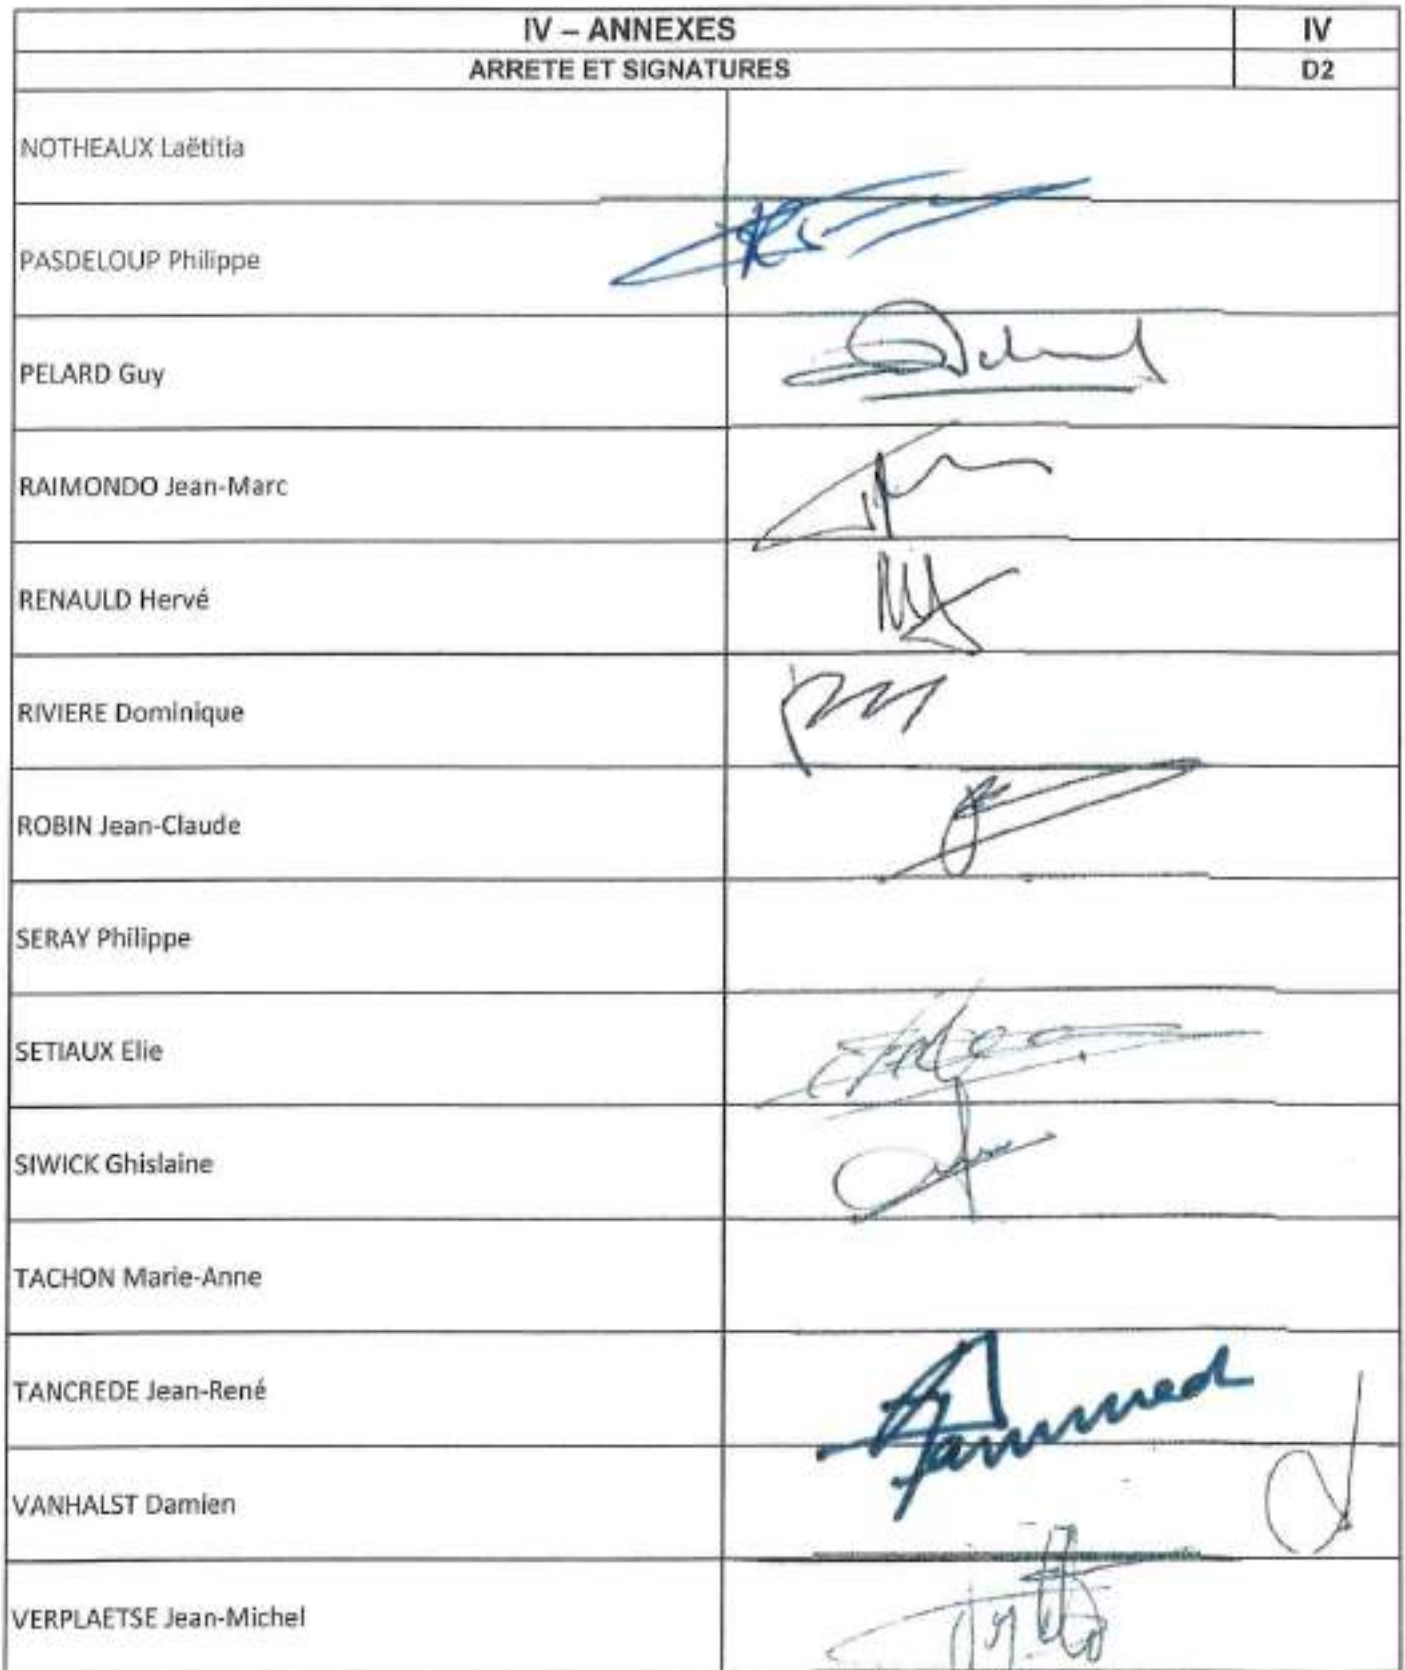 IV – ANNEXES
IV
ARRETE ET SIGNATURES
D2
NOTHEAUX Laëtitia
PASDELOUP Philippe
PELARD Guy
RAIMONDO Jean-Marc
RENAULD Hervé
RIVIERE Dominique
ROBIN Jean-Claude
SERAY Philippe
SETIAUX Elie
SIWICK Ghislaine
TACHON Marie-Anne
TANCREDE Jean-René
VANHALST Damien
VERPLAETSE Jean-Michel